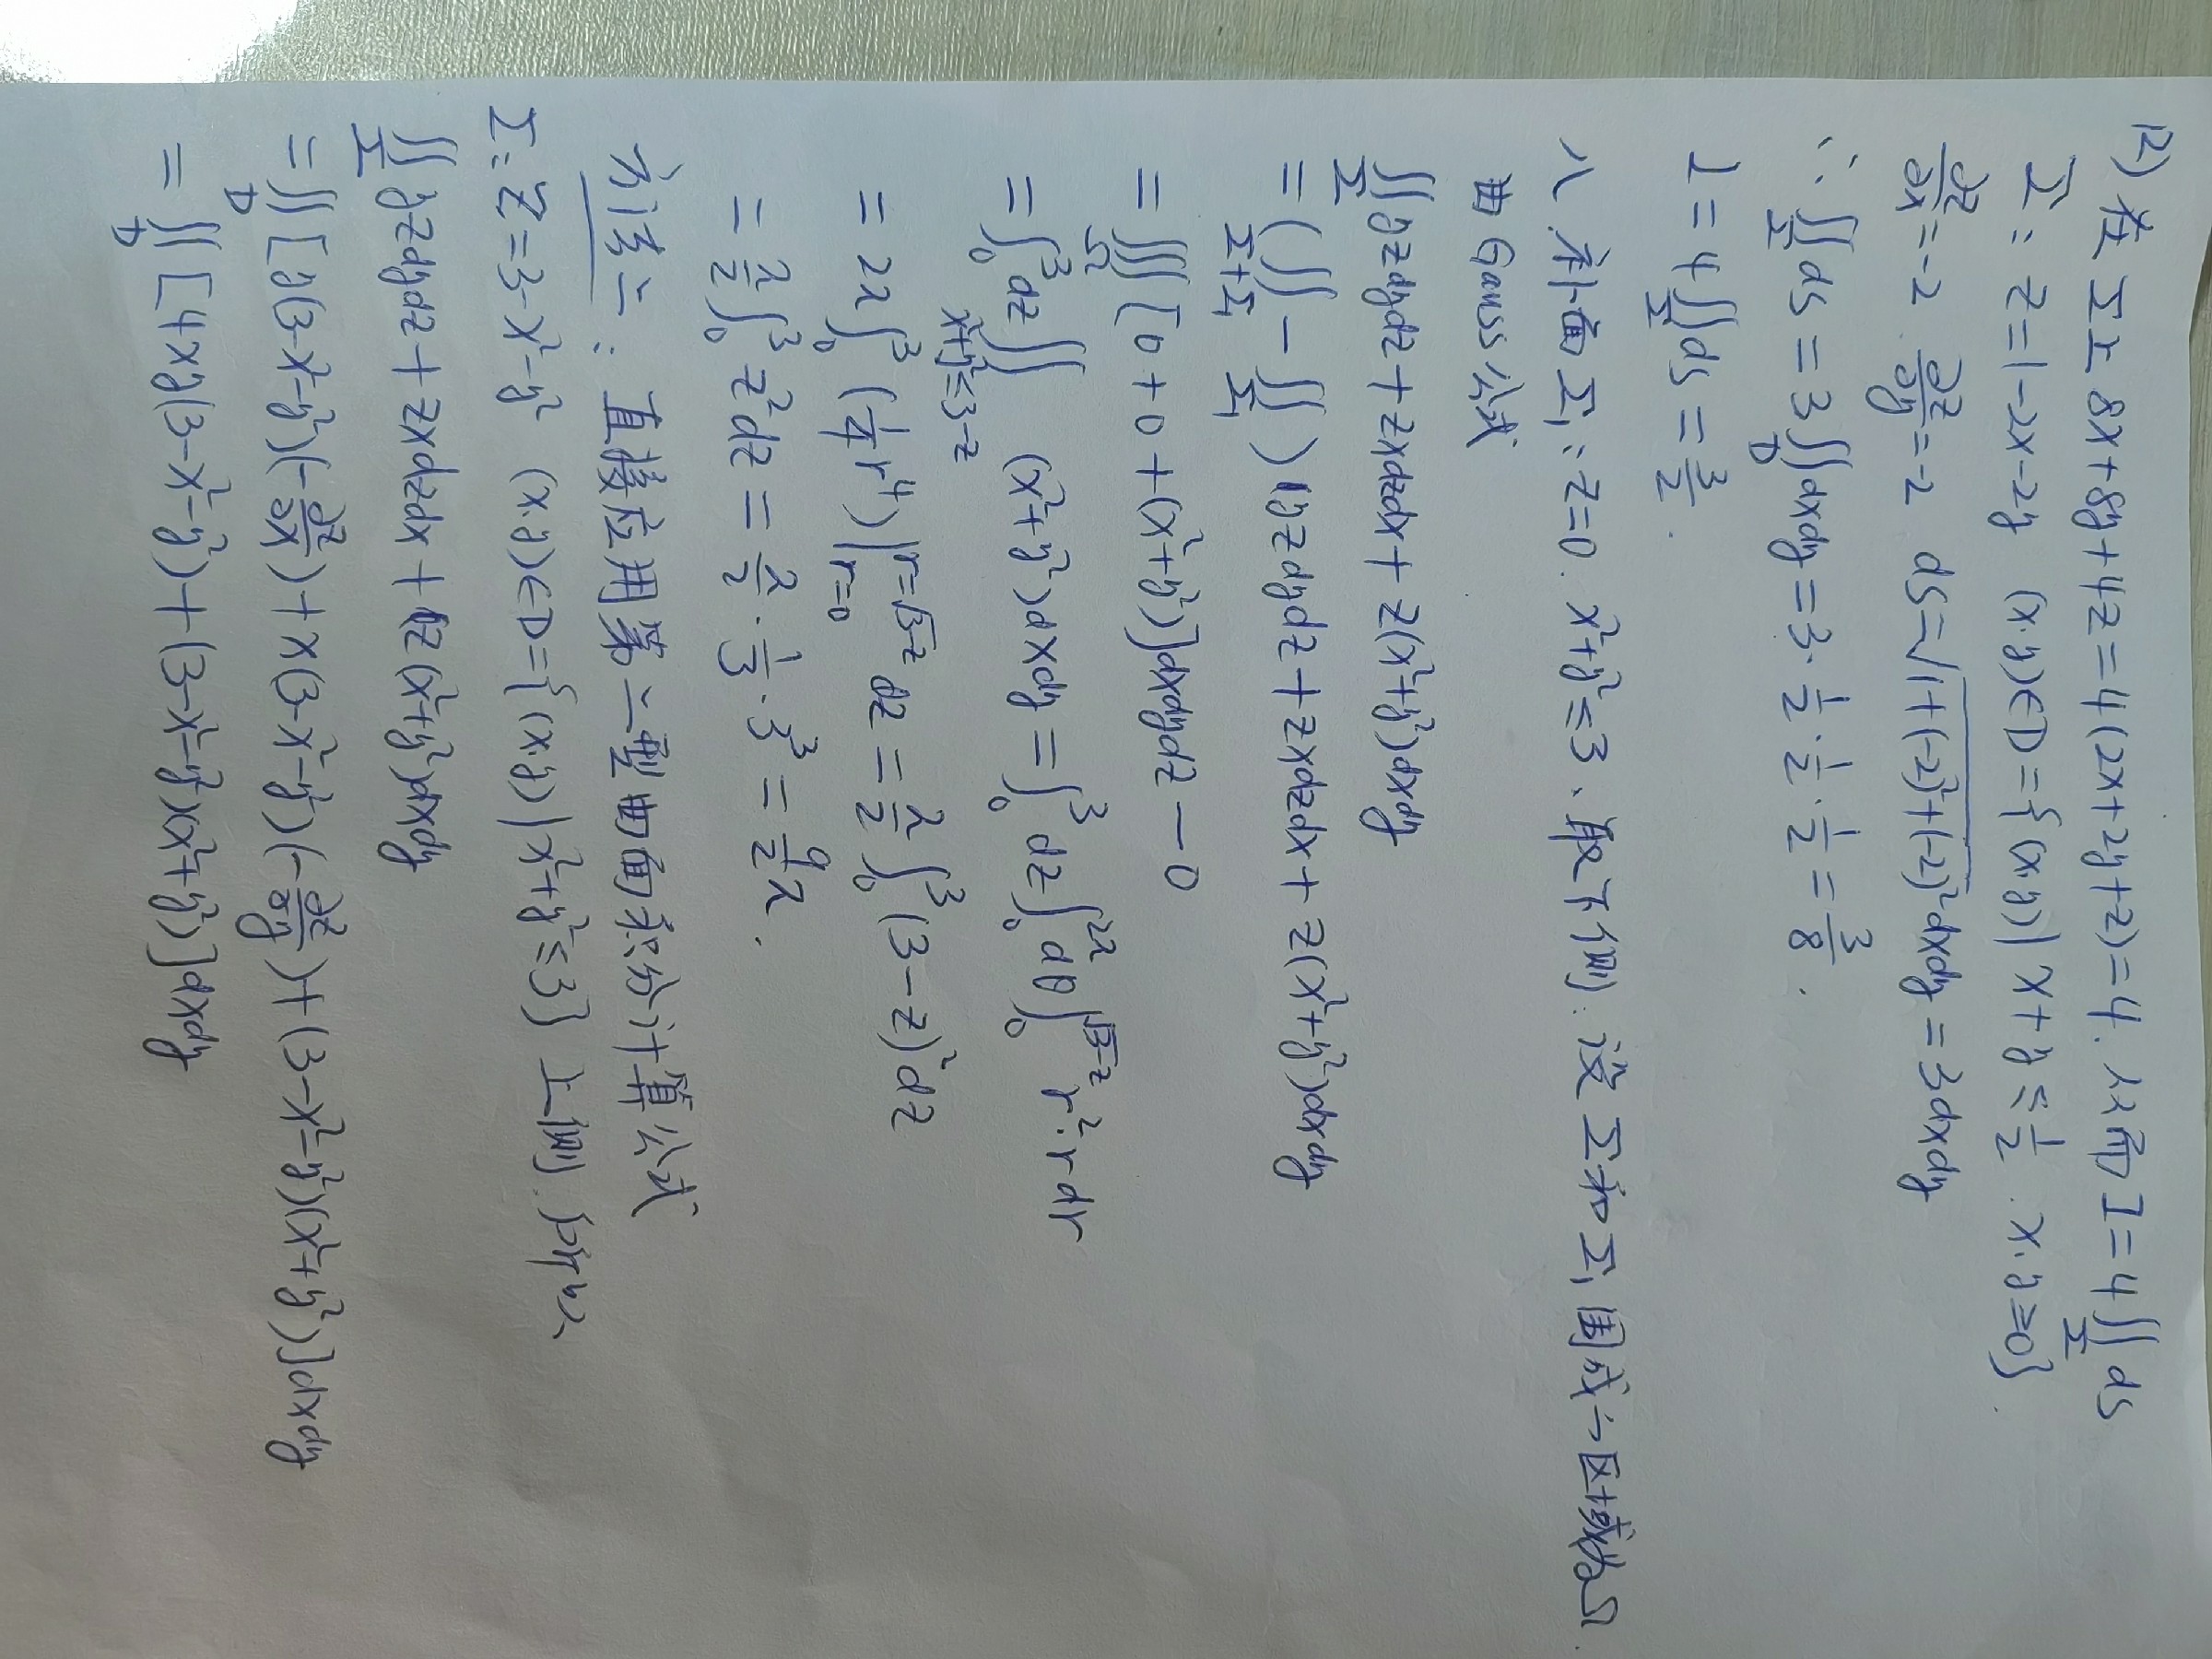 (2) 在Σ上 8x+8y+4z=4(2x+2y+z)=4. 从而 I=4∬_Σ ds
Σ: z=1-2x-2y (x.y)∈D={(x.y)| x+y≤1/2 . x.y≥0}.
∂z/∂x=-2 . ∂z/∂y=-2 ds=√(1+(-2)²+(-2)²) dxdy=3dxdy
∴ ∬_Σ ds=3∬_D dxdy=3·1/2·1/2·1/2=3/8 .
I=4∬_Σ ds=3/2 .
八. 补面Σ₁: z=0. x²+y²≤3、取下侧; 设Σ和Σ₁围成一区域为Ω.
由Gauss公式
∬_Σ yzdydz+zxdzdx+z(x²+y²)dxdy
=(∬_{Σ+Σ₁} - ∬_{Σ₁}) (yzdydz+zxdzdx+z(x²+y²)dxdy
=∭_Ω [0+0+(x²+y²)]dxdydz-0
=∫₀³dz∬_{x²+y²≤3-z} (x²+y²)dxdy=∫₀³dz∫₀^{2π}dθ∫₀^{√(3-z)} r²·rdr
=2π∫₀³(1/4 r⁴)|_{r=0}^{r=√(3-z)} dz=π/2∫₀³(3-z)²dz
=π/2∫₀³z²dz=π/2·1/3·3³=9/2π .
方法二: 直接应用第二型曲面积分计算公式
Σ: z=3-x²-y² (x.y)∈D={(x.y)|x²+y²≤3} 上侧. 所以
∬_Σ yzdydz+zxdzdx+z(x²+y²)dxdy
=∬_D [y(3-x²-y²)(-∂z/∂x)+x(3-x²-y²)(-∂z/∂y)+(3-x²-y²)(x²+y²)]dxdy
=∬_D [4xy(3-x²-y²)+(3-x²-y²)(x²+y²)]dxdy